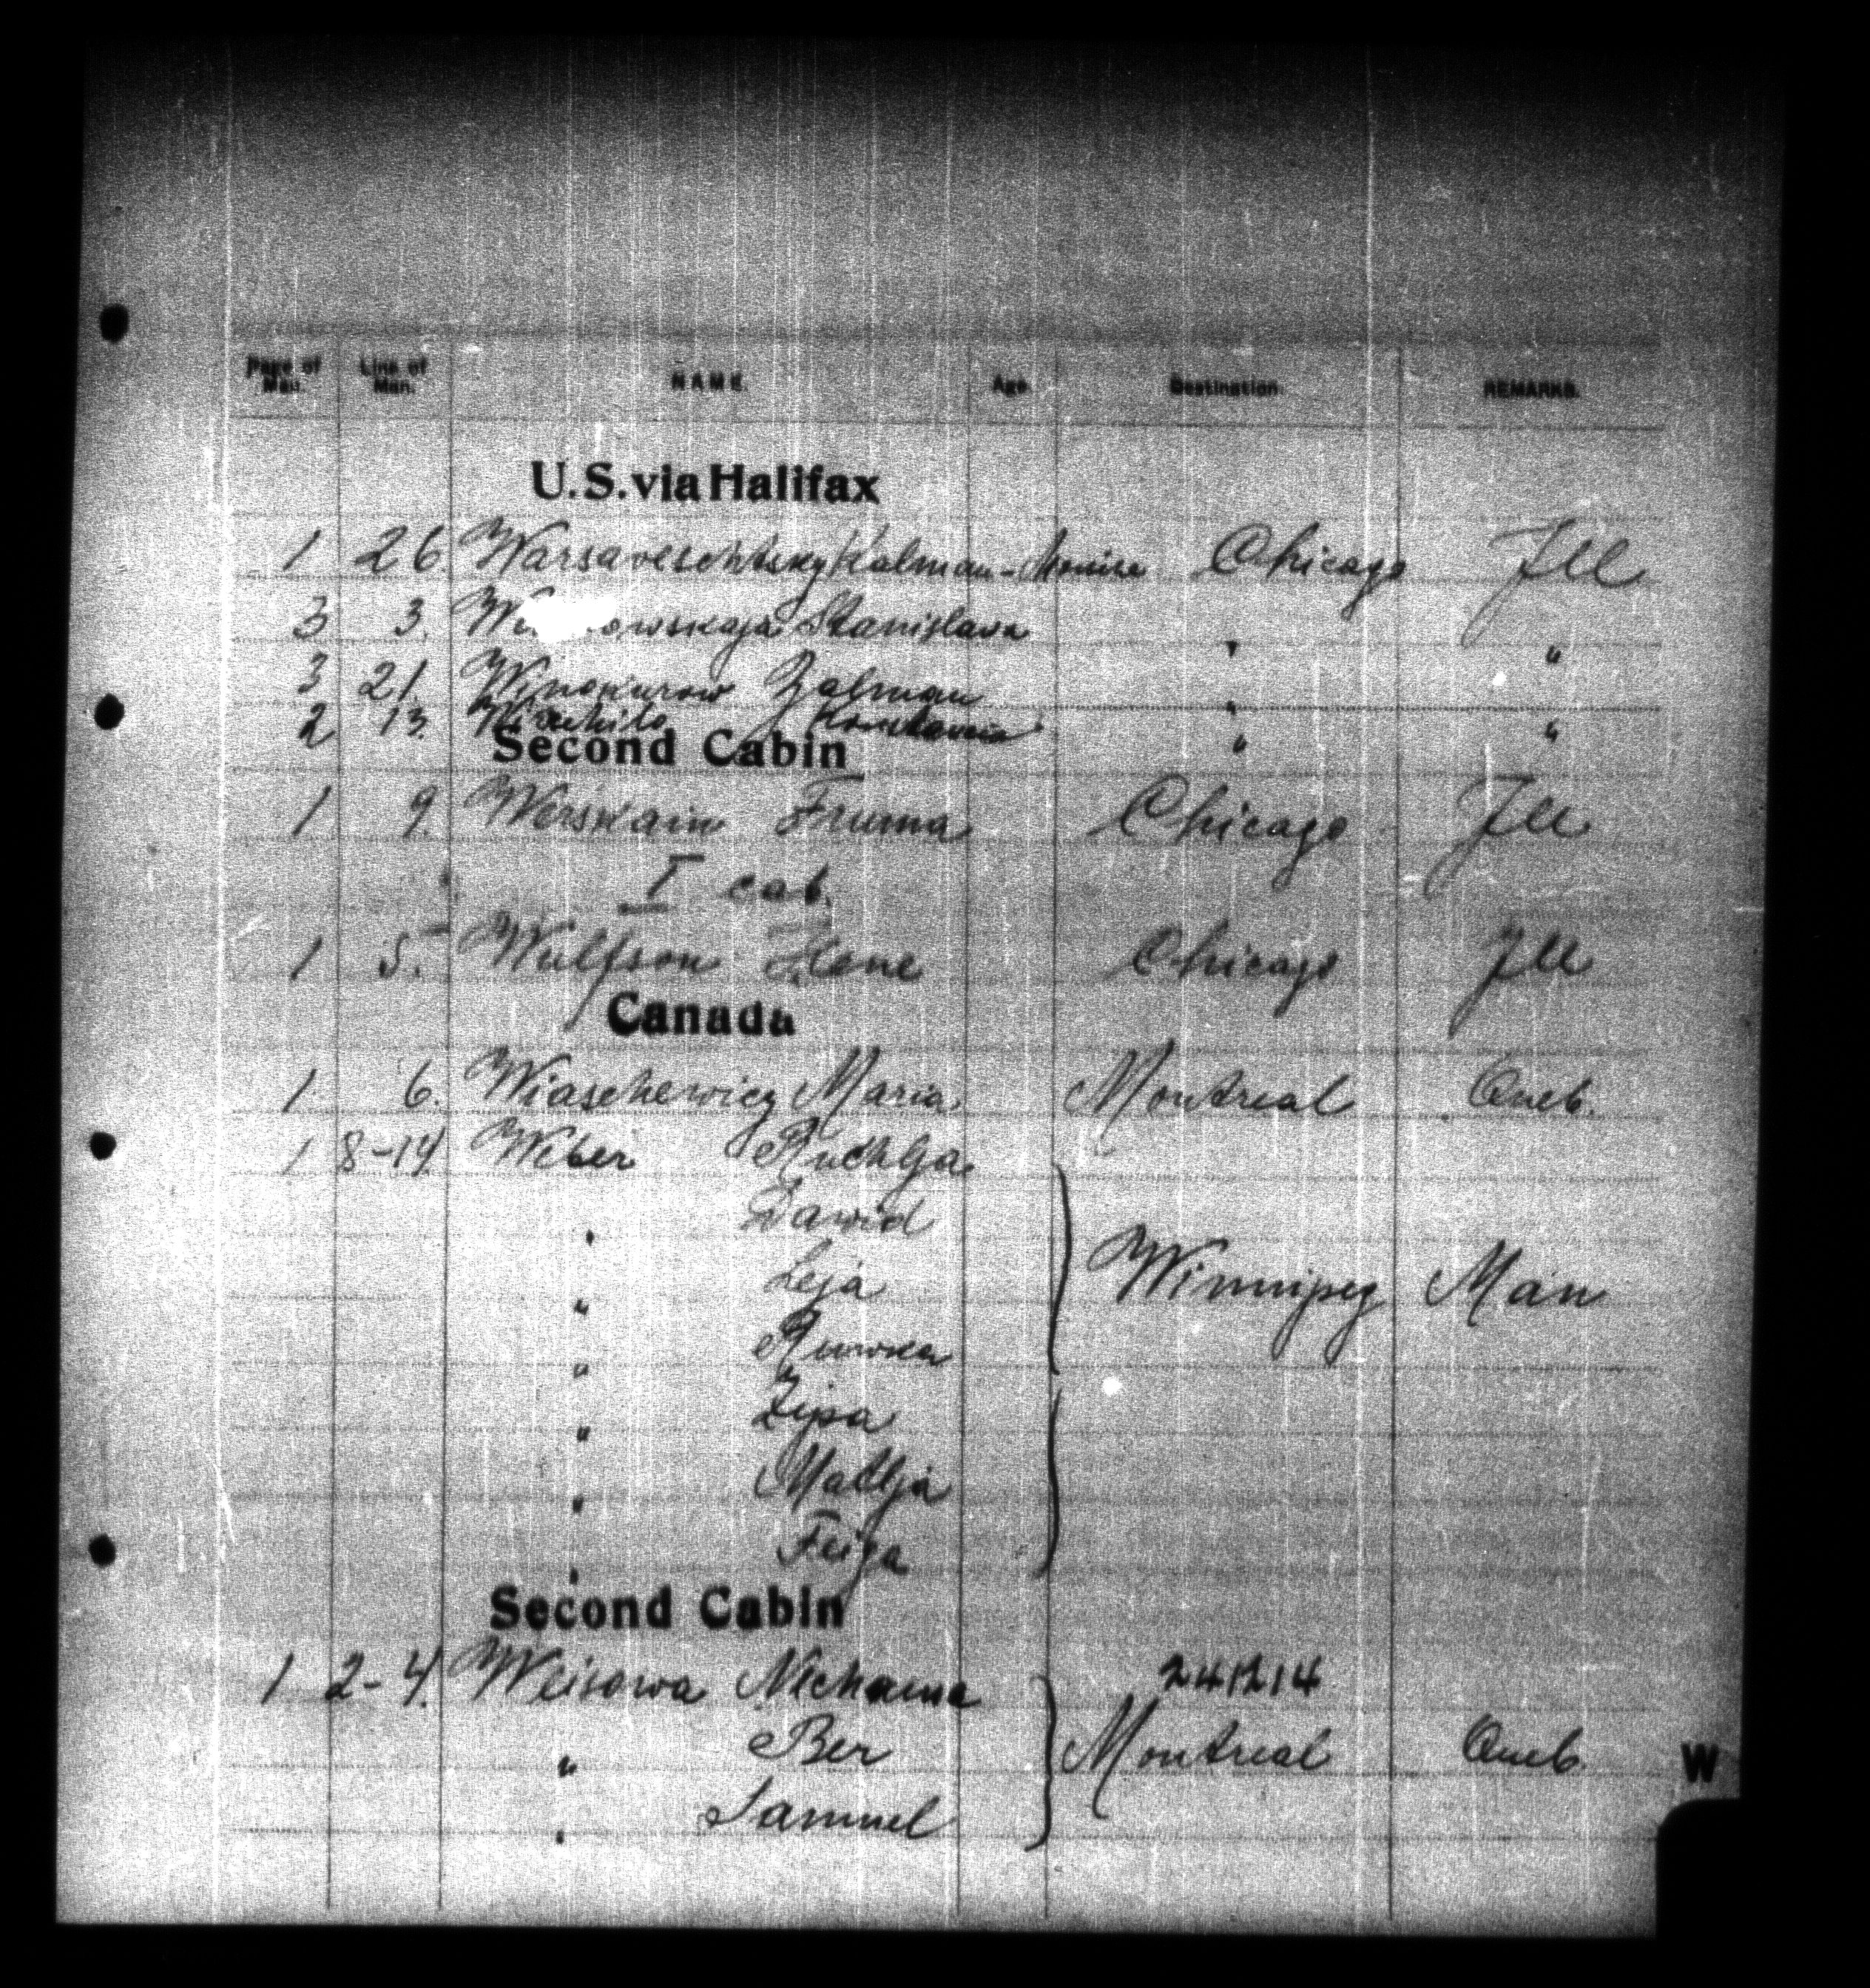 Page of Man. Line of Man. NAME. Age Destination. REMARKS.
U.S. via Halifax
1 26 Kalman- Chicago Ill
3 3. Stanislava " "
3 21. Winokurow Zalman "
2 13. " "
Second Cabin
1 9. Werskain Fruma Chicago Ill
I cab.
1 5. Wulfson Hene Chicago Ill
Canada
1 6. Wiaschewicz Maria Montreal Queb.
1 8-14 Weber Ruchlja
" Dawid
" Leja Winnipeg Man
" Riwka
" Zipa
" Matlja
" Feiga
Second Cabin
1 2-4. Weisowa Nechama 241214
" Ber Montreal Queb. W
" Samuel